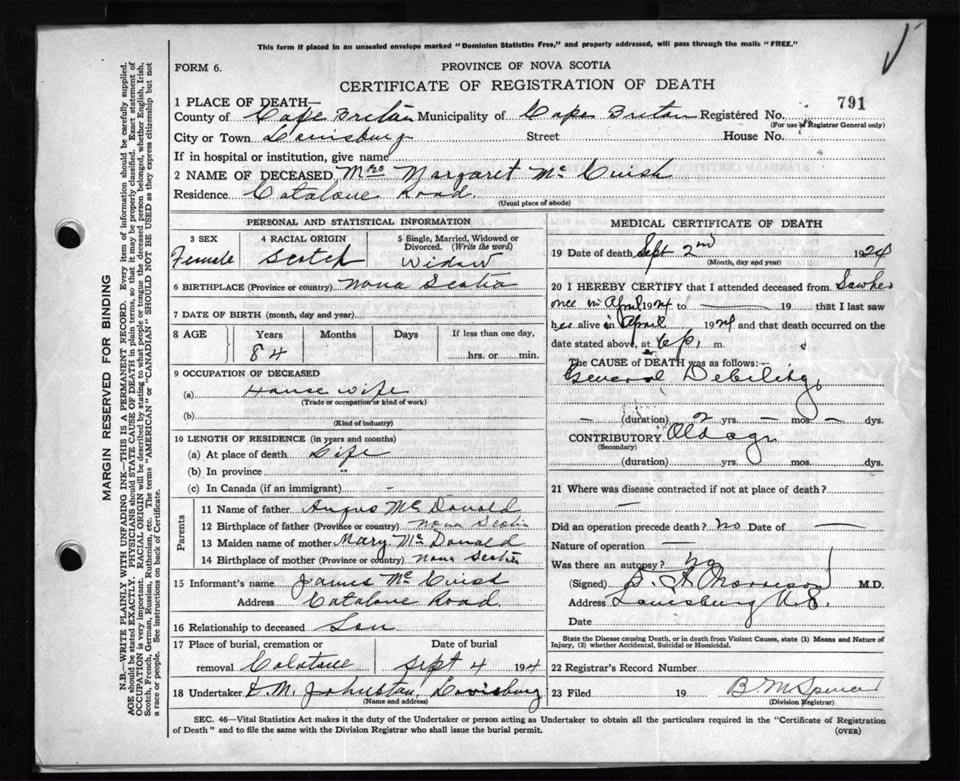 This form if placed in an unsealed envelope marked "Dominion Statistics Free," and properly addressed, will pass through the mails "FREE."
FORM 6.
PROVINCE OF NOVA SCOTIA
CERTIFICATE OF REGISTRATION OF DEATH
791
1 PLACE OF DEATH—
County of Cape Breton Municipality of Cape Breton Registered No.
(For use of Registrar General only)
City or Town Louisburg Street House No.
If in hospital or institution, give name
2 NAME OF DECEASED Mrs Margaret Mc Cuish
Residence Catalone Road.
(Usual place of abode)
PERSONAL AND STATISTICAL INFORMATION
3 SEX
Female
4 RACIAL ORIGIN
Scotch
5 Single, Married, Widowed or Divorced. (Write the word)
Widow
6 BIRTHPLACE (Province or country) Nova Scotia
7 DATE OF BIRTH (month, day and year)
8 AGE Years Months Days If less than one day,
84 hrs. or min.
9 OCCUPATION OF DECEASED
(a) House wife
(Trade or occupation or kind of work)
(b)
(Kind of industry)
10 LENGTH OF RESIDENCE (in years and months)
(a) At place of death Life
(b) In province "
(c) In Canada (if an immigrant) -
Parents
11 Name of father Angus Mc Donald
12 Birthplace of father (Province or country) Nova Scotia
13 Maiden name of mother Mary Mc Donald
14 Birthplace of mother (Province or country) Nova Scotia
15 Informant's name James Mc Cuish
Address Catalone Road.
16 Relationship to deceased Son
17 Place of burial, cremation or removal Date of burial
Catalone Sept 4 194
18 Undertaker Johnston, Louisburg
(Name and address)
MEDICAL CERTIFICATE OF DEATH
19 Date of death Sept 2nd 1924
(Month, day and year)
20 I HEREBY CERTIFY that I attended deceased from Saw her
once in April 1924 to — 19 that I last saw
her alive in April 1924 and that death occurred on the
date stated above, at 6 p. m.
The CAUSE of DEATH was as follows:—
General Debility
— (duration) 2 yrs. — mos. — dys.
CONTRIBUTORY Old age
(Secondary)
(duration) yrs. mos. dys.
21 Where was disease contracted if not at place of death?
—
Did an operation precede death? No Date of —
Nature of operation —
Was there an autopsy? No
(Signed) Morrison M.D.
Address Louisburg N.S.
Date
State the Disease causing Death, or in death from Violent Causes, state (1) Means and Nature of Injury, (2) whether Accidental, Suicidal or Homicidal.
22 Registrar's Record Number
23 Filed 19 B M Spencer
(Division Registrar)
SEC. 46—Vital Statistics Act makes it the duty of the Undertaker or person acting as Undertaker to obtain all the particulars required in the "Certificate of Registration
of Death" and to file the same with the Division Registrar who shall issue the burial permit.
(OVER)
MARGIN RESERVED FOR BINDING
N.B.—WRITE PLAINLY WITH UNFADING INK—THIS IS A PERMANENT RECORD. Every item of information should be carefully supplied.
AGE should be stated EXACTLY. PHYSICIANS should STATE CAUSE OF DEATH in plain terms, so that it may be properly classified. Exact statement of
OCCUPATION is very important. RACIAL ORIGIN will be described by stating to what people or tongue the deceased person belonged, whether English, Irish,
Scotch, French, German, Russian, Ruthenian, etc. The terms "AMERICAN" or "CANADIAN" SHOULD NOT BE USED as they express citizenship but not
a race or people. See instructions on back of Certificate.